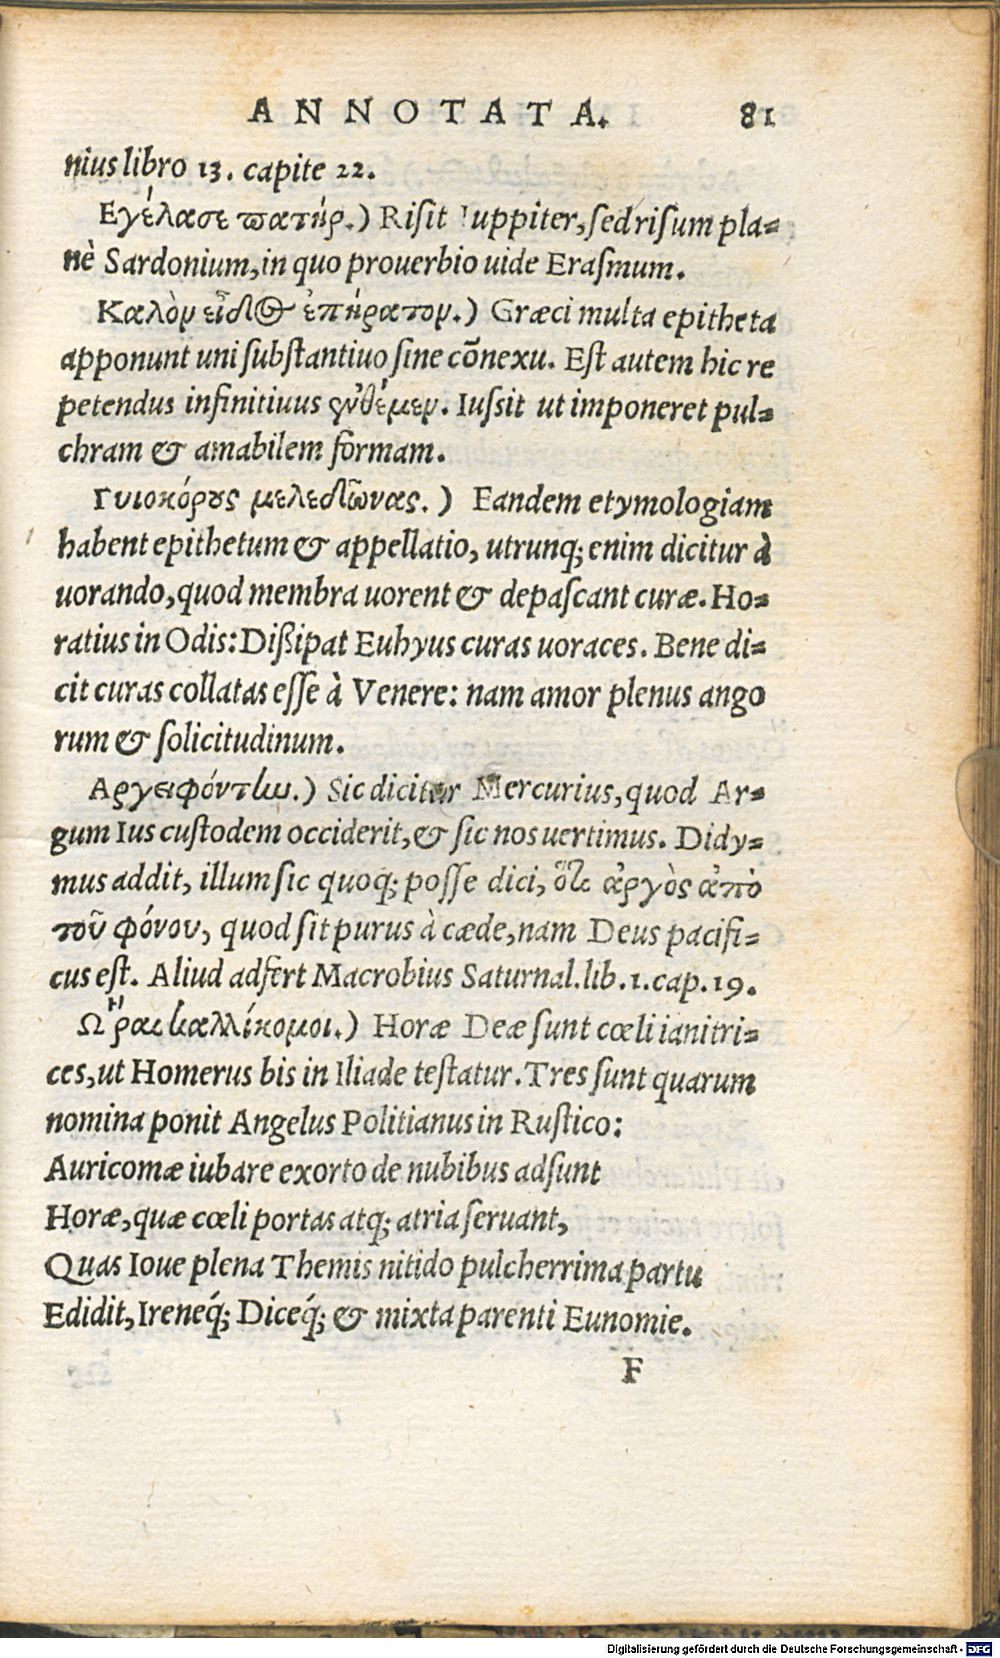 ANNOTATA. 81
nius libro 13. capite 22.
Εγέλασε πατήρ.) Risit Iuppiter, sed risum pla-
nè Sardonium, in quo prouerbio uide Erasmum.
Καλὸν εἶδος ἐπήρατον.) Græci multa epitheta
apponunt uni substantiuo sine cõnexu. Est autem hic re
petendus infinitiuus ἐνθέμεν. Iussit ut imponeret pul-
chram & amabilem formam.
Γυιοκόρους μελεδῶνας.) Eandem etymologiam
habent epithetum & appellatio, utrunq; enim dicitur à
uorando, quod membra uorent & depascant curæ. Ho-
ratius in Odis: Dißipat Euhyus curas uoraces. Bene di-
cit curas collatas esse à Venere: nam amor plenus ango
rum & solicitudinum.
Αργειφόντην.) Sic dicitur Mercurius, quod Ar-
gum Ius custodem occiderit, & sic nos uertimus. Didy-
mus addit, illum sic quoq; posse dici, ὅτι ἀργὸς ἀπὸ
τοῦ φόνου, quod sit purus à cæde, nam Deus pacifi-
cus est. Aliud adfert Macrobius Saturnal. lib. 1. cap. 19.
Ωραι καλλίκομοι.) Horæ Deæ sunt cœli ianitri-
ces, ut Homerus bis in Iliade testatur. Tres sunt quarum
nomina ponit Angelus Politianus in Rustico:
Auricomæ iubare exorto de nubibus adsunt
Horæ, quæ cœli portas atq; atria seruant,
Quas Ioue plena Themis nitido pulcherrima partu
Edidit, Ireneq́; Diceq́; & mixta parenti Eunomie.
F
Digitalisierung gefördert durch die Deutsche Forschungsgemeinschaft - DFG